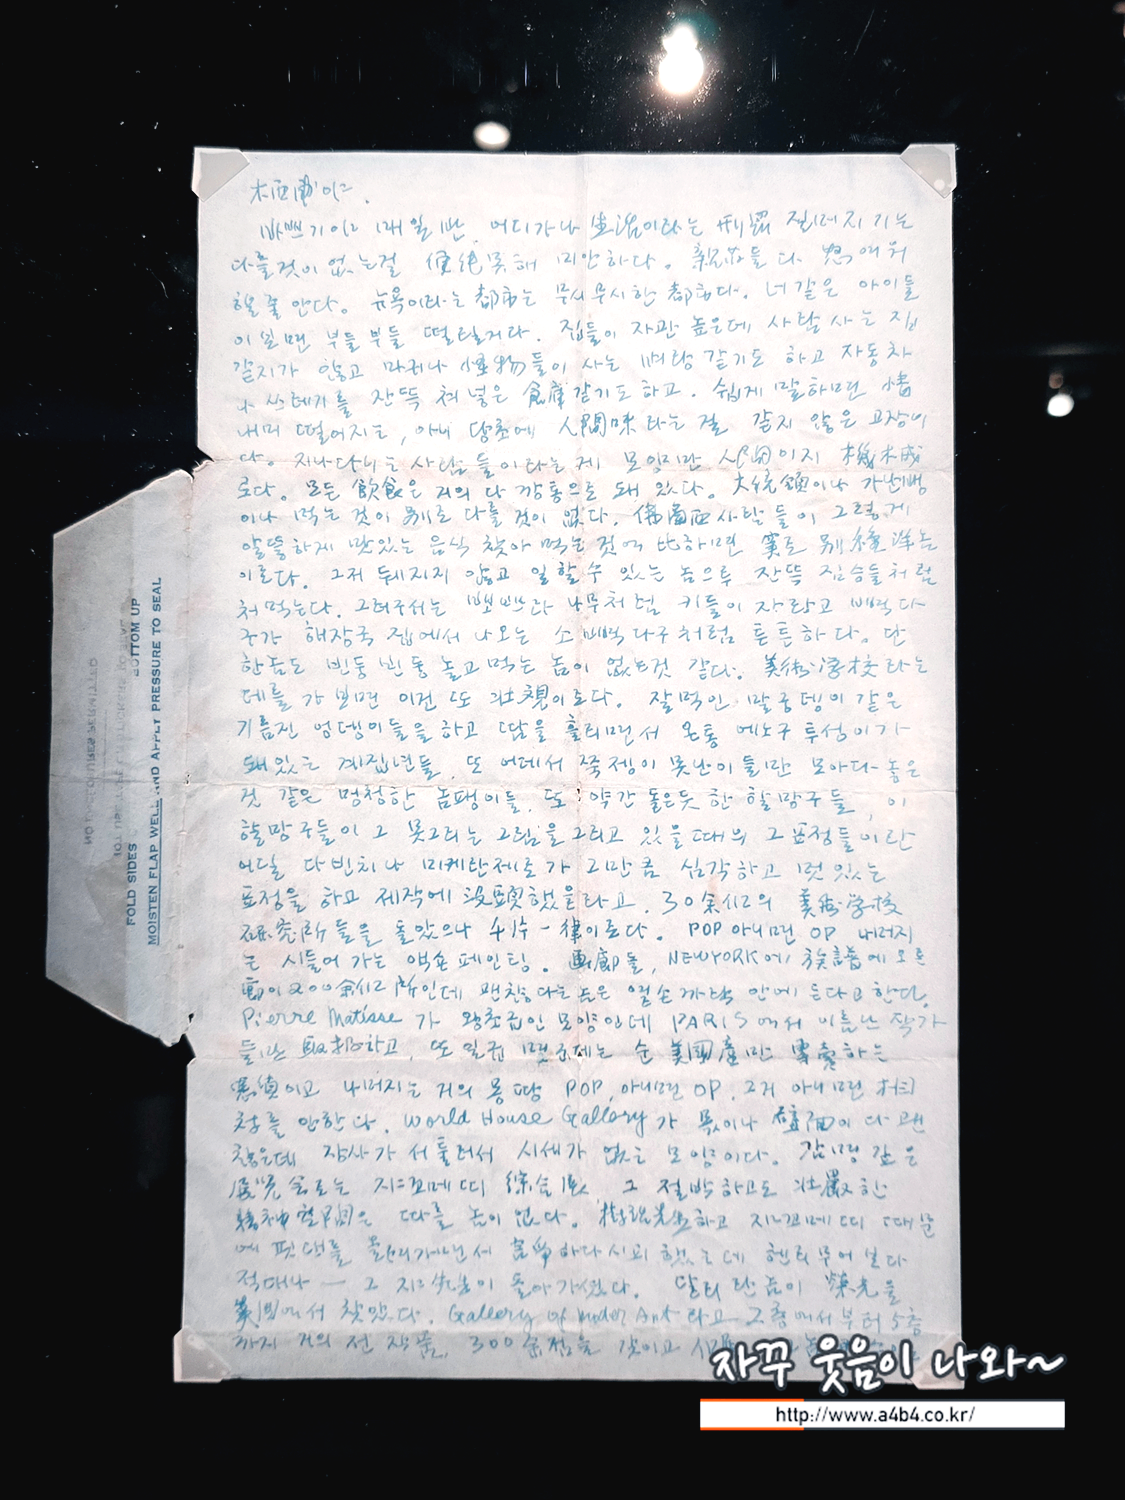 바쁘기야 매일반, 어디가나 生活이라는 刑罰 절머지기는
다를것이 없는걸 便紙못해 미안하다. 親旧들 다
할줄 안다. 뉴욕이라는 都市는 무시무시한 都市다. 너같은 아이들
이 보면 부들부들 떨릴거다. 집들이 자꾸 높은데 사람 사는 집
같지가 않고 마귀나 怪物들이 사는 떠탑 같기도 하고 자동차
나 쓰레기를 잔뜩 쳐 넣은 倉庫같기도 하고. 쉽게 말하면
내머 떨어지는, 아니 당초에 人間味라는걸 같지 않은 고장이
다. 지나다니는 사람들이라는게 모양지만 人間이지 機械
로다. 모든 飮食은 거의 다 깡통으로 돼 있다. 大統領이나 가난뱅
이나 먹는 것이 別로 다를 것이 없다. 佛蘭西사람들이 그렇게
알뜰하게 맛있는 음식 찾아 먹는 것에 比하면 別
이로다. 그저 뒈지지 않고 일할수 있는 놈으루 잔뜩 짐승들처럼
처먹는다. 그려구서는 나무처럼 키들이 자랐고 뼈다
구가 해장국 집에서 나오는 소 뼈다구처럼 튼튼하다. 단
한놈도 빈둥빈둥 놀고 먹는 놈이 없는것 같다. 美術學校라는
데를 가 보면 이건 또 壯観이로다. 잘먹인 말궁뎅이 같은
기름진 엉뎅이들을 하고 땀을 흘리면서 온통 에노구 투성이가
돼있는 계집년들, 또 어데서 쭉젱이 못난이들만 모아다 놓은
것 같은 멍청한 놈팽이들, 또 약간 돌은듯 한 할망구들, 이
할망구들이 그 못그리는 그림을 그리고 있을때의 그 표정들이란
어딜 다빈치나 미케란제로가 그만큼 심각하고 멋있는
표정을 하고 제작에 沒頭했을라고. 30余個의 美術學校
研究所들을 돌았으나 千律이로다. POP 아니면 OP 나머지
는 시들어 가는 액숀 페인팅. 画廊들, NEWYORK에 族譜에 오른
画이 200余個所인데 괜찮다는 놈은 열손까락 안에 든다고 한다.
Pierre Matisse 가 왕초집인 모양인데 PARIS에서 이름난 작가
들만 取扱하고, 또 일곱 군데는 순 美國産만 専賣하는
이고 나머지는 거의 몽땅 POP, 아니면 OP. 그거 아니면
초를 안한다. World House Gallery 가 몫이나 다 괜
찮은데 장사가 서툴러서 시세가 없는 모양이다. 같은
展覽会로는 자꼬메띠 綜合展, 그 절박하고도 壯嚴한
精神空間은 따를 놈이 없다. 하고 자꼬메띠 때문
에 핏대를 올리가면서 하다시피 했는데 헨리 무어 보다
적대나 — 그 先生이 돌아가셨다. 달리란놈이 榮光을
에서 찾았다. Gallery of modern Art 라고 2층에서부터 5층
까지 거의 전 작품, 300余점을 걸이고
FOLD SIDES BOTTOM UP
MOISTEN FLAP WELL AND APPLY PRESSURE TO SEAL
자꾸 웃음이 나와~
http://www.a4b4.co.kr/